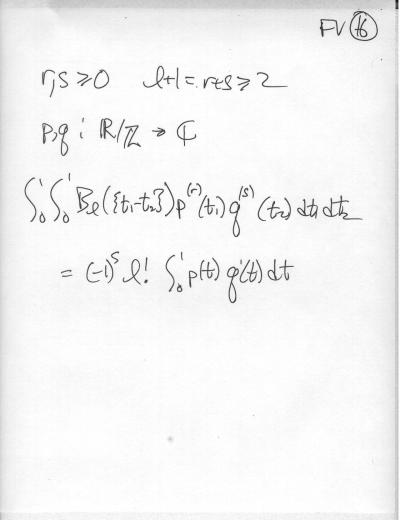 FV 16
r,s ≥ 0 l+1 = r+s ≥ 2
p,q : ℝ/ℤ → ℂ
∫₀¹ ∫₀¹ B_l({t₁-t₂}) p^(r)(t₁) q^(s)(t₂) dt₁ dt₂
= (-1)^s l! ∫₀¹ p(t) q'(t) dt